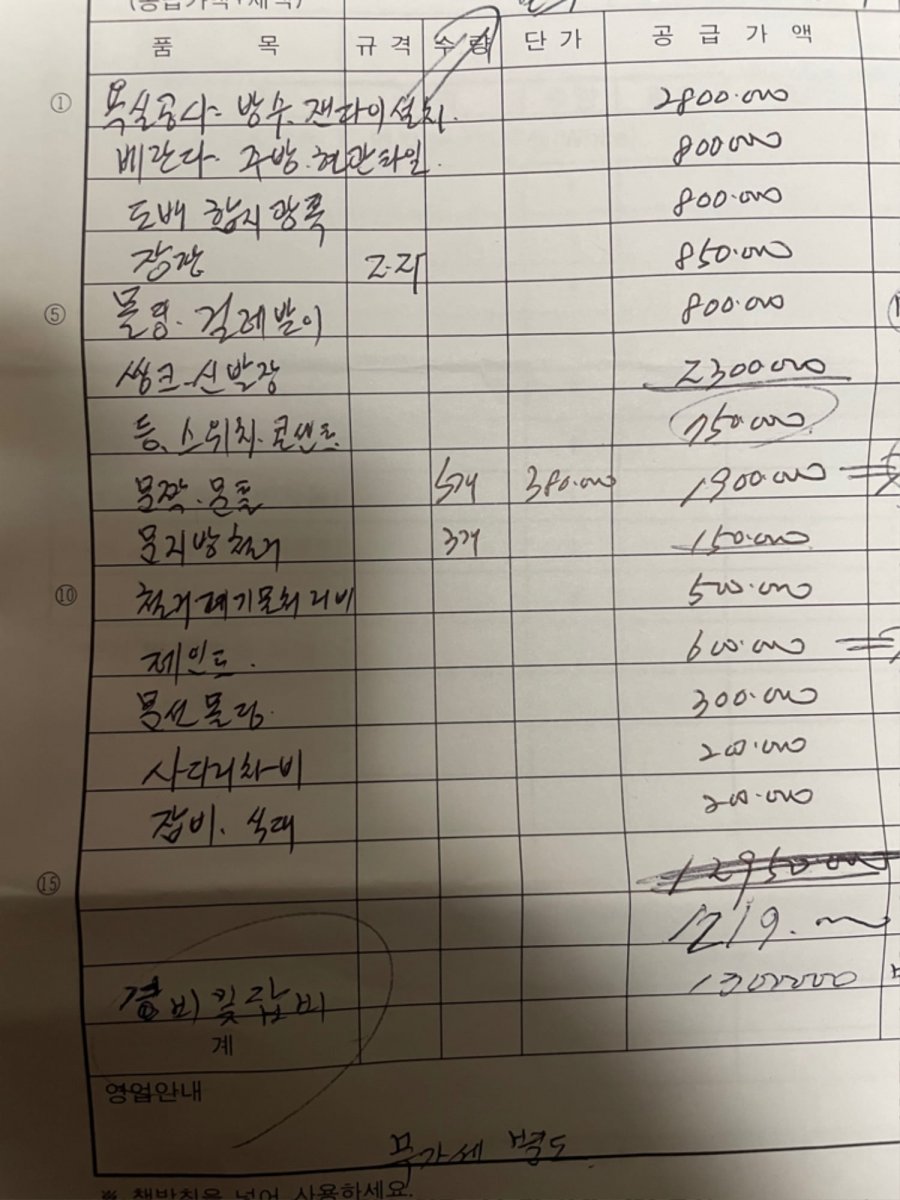 (공급가액+세액)
품 목 규격 수량 단가 공급가액
① 욕실공사 방수. 젠다이설치. 2800.000
베란다 주방.현관타일. 800.000
도배 합지광폭 800.000
장판 2.2T 850.000
⑤ 몰딩. 걸레받이 800.000
씽크 신발장 2300000
등, 스위치.콘센트 750.000
문짝.문틀 5개 380.000 1900.000
문지방철거 3개 150.000
⑩ 철거폐기물처리비 500.000
페인트. 600.000
문선몰딩. 300.000
사다리차비 200.000
잡비. 식대 200.000
⑮ 12950000
1219.
경비및잡비 1300000
계
영업안내
부가세 별도
※ 책받침을 넣어 사용하세요.